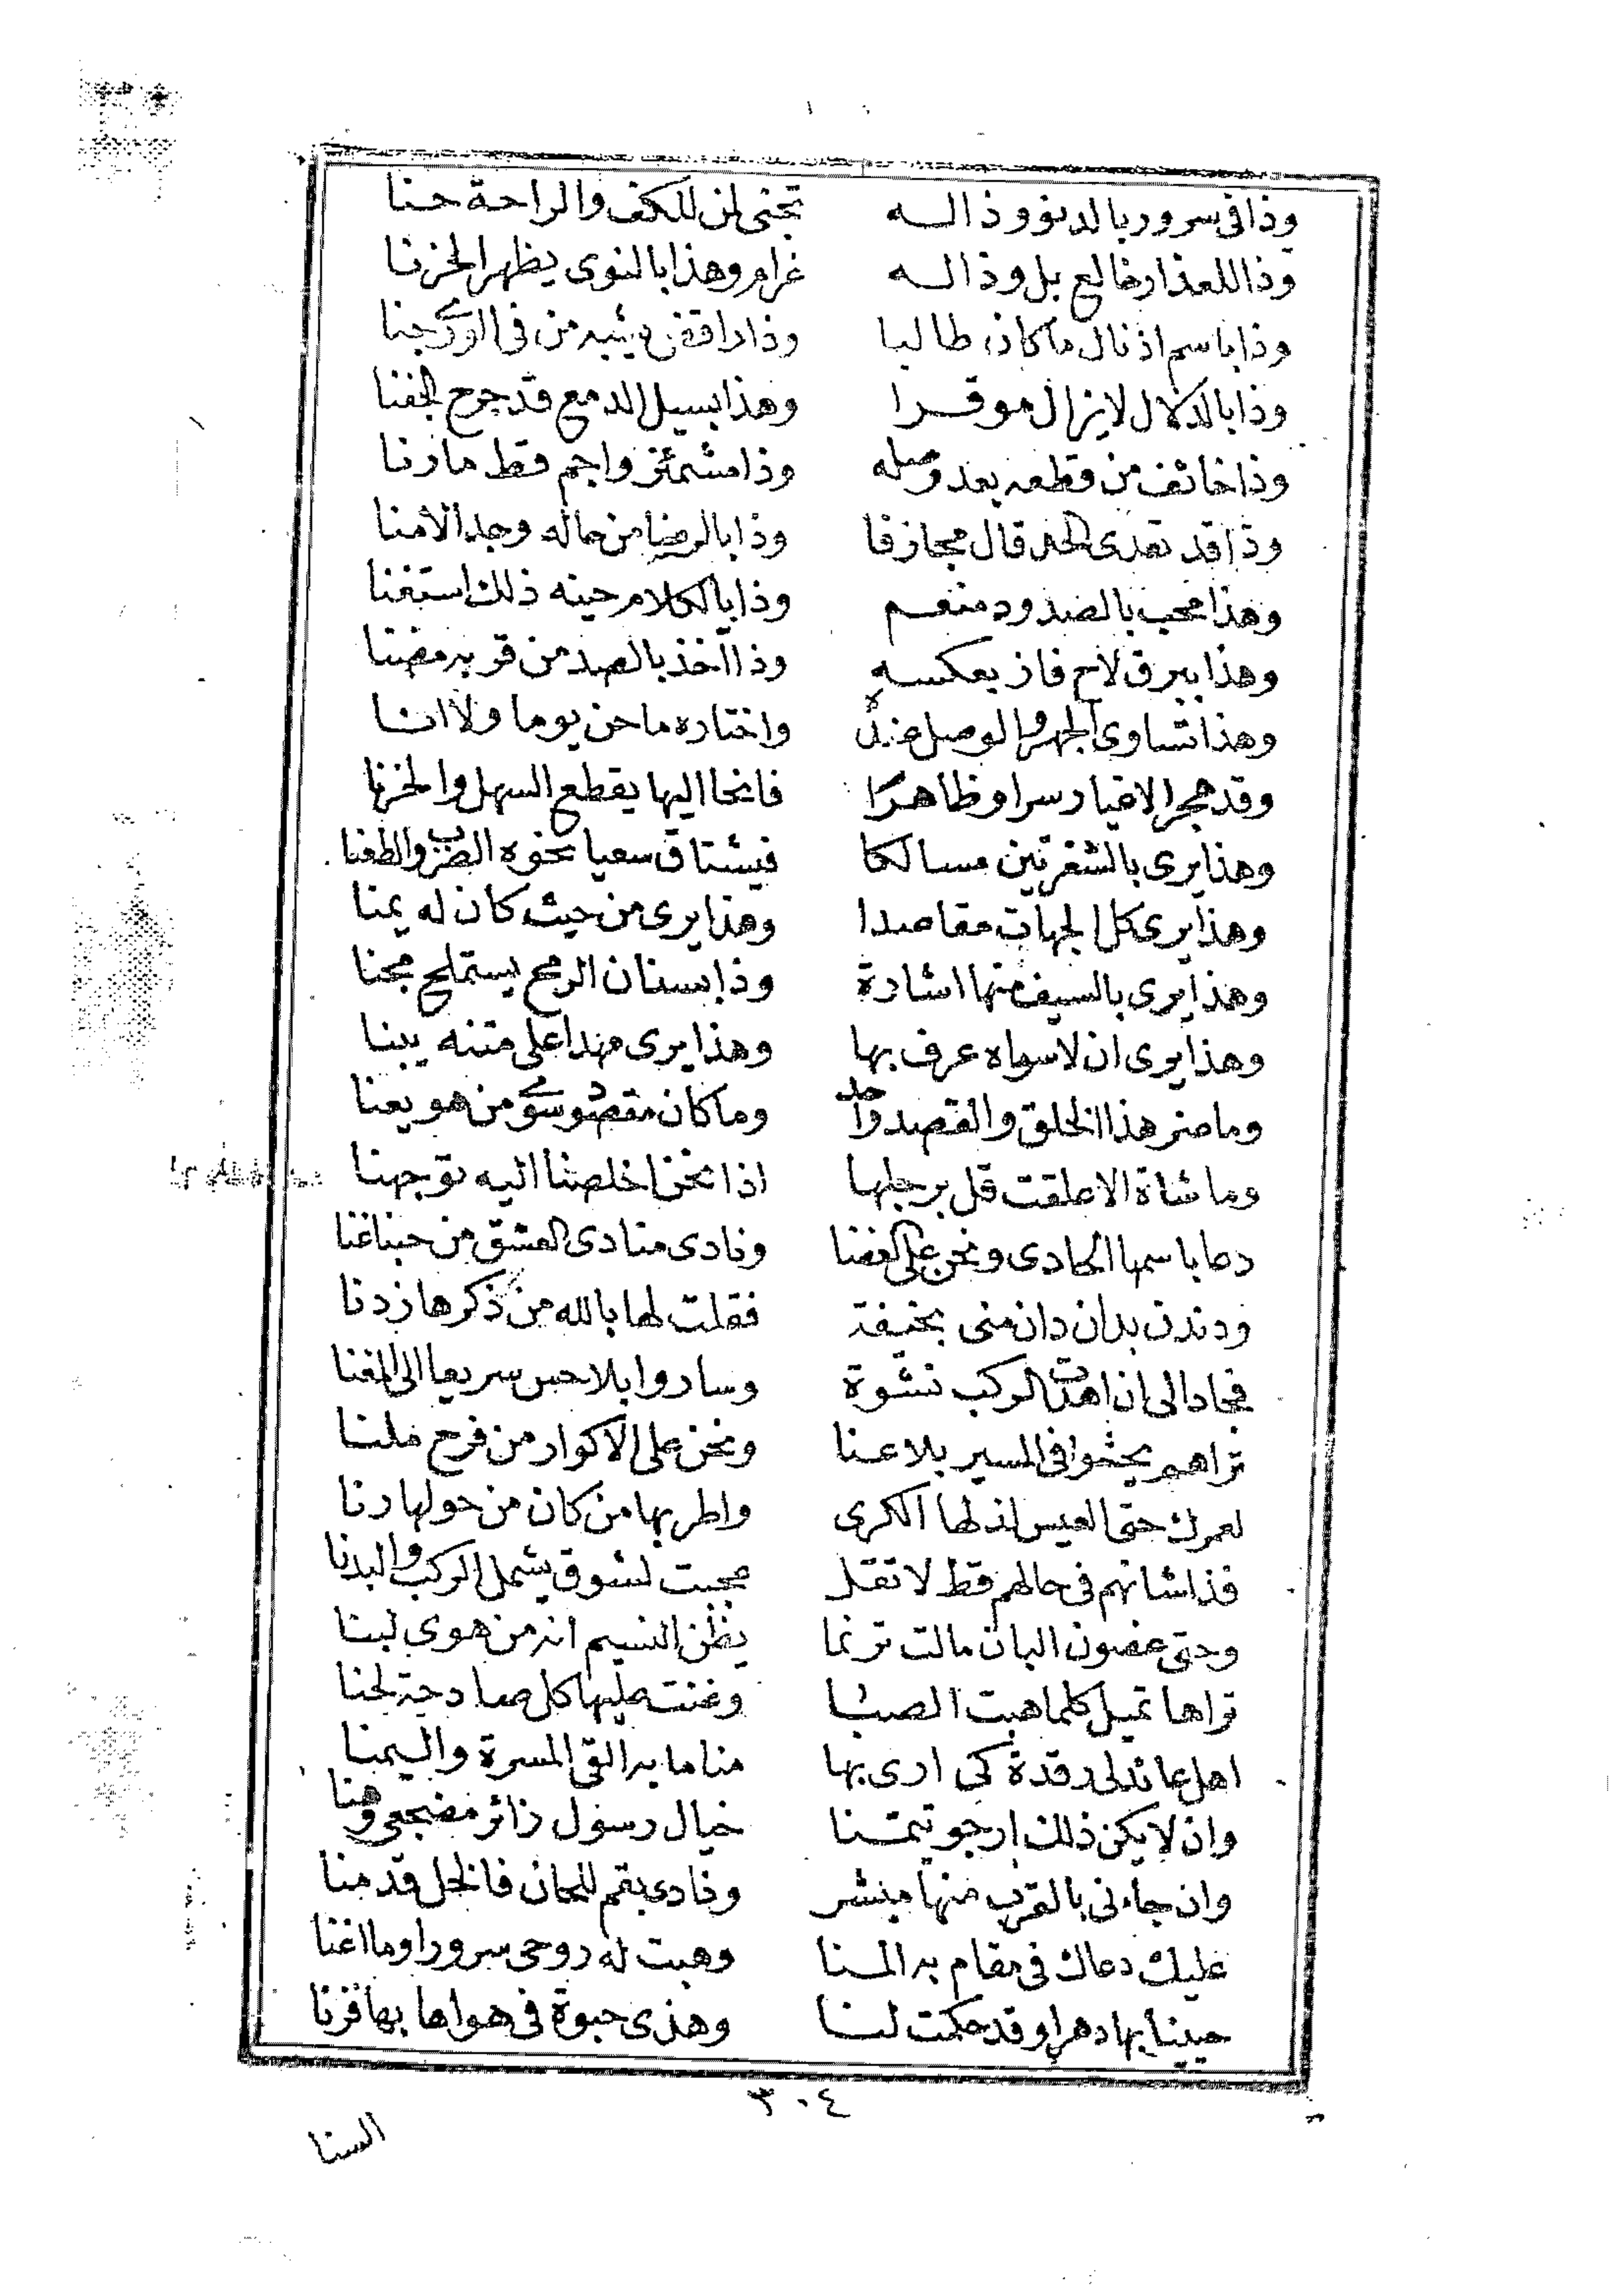 وذا فى سرور بالدنو وذا له تجنى لمن للكف والراحة حنا
وذا للعذار خالع بل وذا له غرام وهذا بالنوى يظهر الحزنا
وذا باسم اذ نال ما كان طالبا وذا راقص يشبه من فى الورى جنا
وذا بالدلال لا يزال موقرا وهذا بسيل الدمع قد جرح الجفنا
وذا خائف من قطعه بعد وصله وذا مشمئز واجم قط مازنا
وذا قد تعدى الحد قال مجازفا وذا بالرضا من حاله وجد الامنا
وهذا محب بالصدود منعم وذا بالكلام حينه ذلك استغنا
وهذا ببرق لاح فاز بعكسه وذا آخذ بالصد من قربه مضنا
وهذا تساوى الهجر والوصل عنده واختاره ما حن يوما ولا انا
وقد هجر الاغيار سرا وظاهرا فانحا اليها يقطع السهل والحزنا
وهذا يرى بالشفرتين مسالكا فيشتاق سعيا نحوه الضرب والطعنا
وهذا يرى كل الجهات مقاصدا وهذا يرى من حيث كان له يمنا
وهذا يرى بالسيف منها اشارة وذا بسنان الرمح يستملح مجنا
وهذا يرى ان لا سواه عرف بها وهذا يرى مهدا على متنه يبنا
وما ضر هذا الخلق والقصد واحد وما كان مقصود سوى من هو يعنا
وما شاة الا علقت قل برجلها اذا نحن اخلصنا اليه توجهنا
دعا باسمها الحادى ونحن على الغضنا ونادى منادى العشق من حبنا غنا
ودندن بدان دان منى بخيفة فقلت لها بالله من ذكرها زدنا
فجاد الى ان اهدت الركب نشوة وساروا بلا حبس سريعا الى المغنا
تراهم يحثوا فى المسير بلا عنا ونحن على الاكوار من فرح ملنا
لعمرك حتى العيس لذ لها الكرى واطربها من كان من حولها رنا
فذا شانهم فى حالهم قط لا تقل عجبت لشوق يشمل الركب والبدنا
وحتى غصون البان مالت ترنما يظن النسيم انه من هوى لبنا
تراها تميل كلما هبت الصبا وغنت عليها كل صادحة لحنا
اهل عائد لى رقدة كى ارى بها مناما به القى المسرة واليمنا
وان لا يكن ذلك ارجو تيمننا خيال رسول زائر مضجعى وهنا
وان جاءنى بالقرب منها مبشر ونادى بقم للحان فالخل قد منا
عليك دعاك فى مقام به المنا وهبت له روحى سرورا وما اغنا
حيينا بها دهرا وقد حكمت لنا وهذى حبوة فى هواها بها فزنا
٣٠٤
السنا